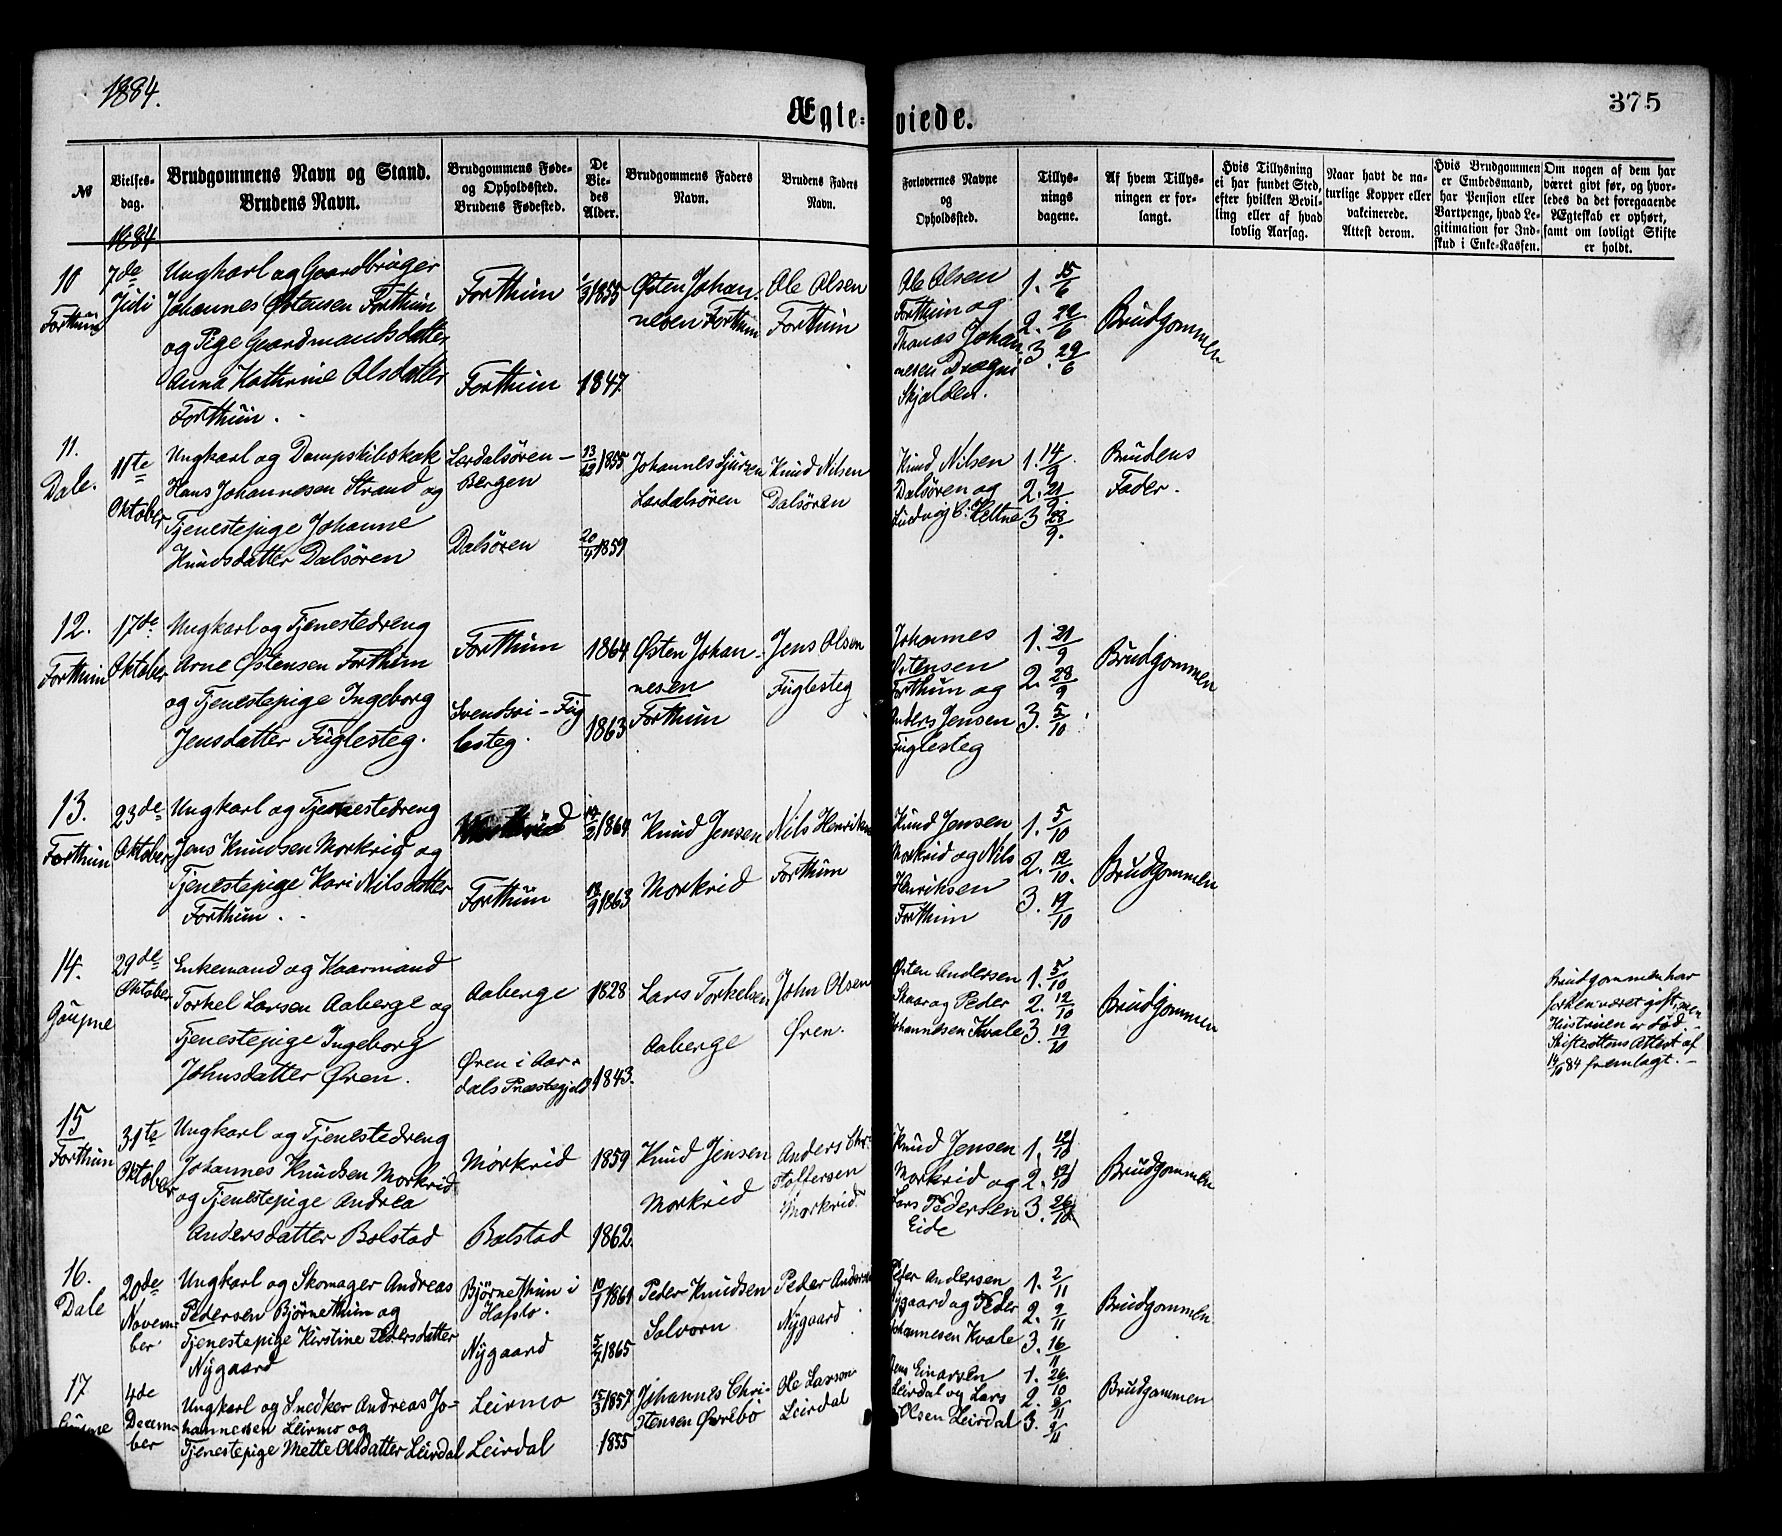 1884.
375
Ægte-viede.
№
Vielses-
dag.
Brudgommens Navn og Stand.
Brudens Navn.
Brudgommens Føde-
og Opholdssted.
Brudens Fødested.
De
Vie-
des
Alder.
Brudgommens Faders
Navn.
Brudens Faders
Navn.
Forlovernes Navne
og
Opholdssted.
Tillys-
nings
dagene.
Af hvem Tillys-
ningen er for-
langt.
Hvis Tillysning
ei har fundet Sted,
efter hvilken Bevil-
ling eller af hvad
lovlig Aarsag.
Naar havt de na-
turlige Kopper eller
vakcinerede.
Attest derom.
Hvis Brudgommen
er Embedsmand,
har Pension eller
Vartpenge, hvad Le-
gitimation for Ind-
skud i Enke-Kassen.
Om nogen af dem har
været givt før, og hvor-
ledes da det foregaaende
Ægteskab er ophørt,
samt om lovligt Skifte
er holdt.
1884
10
Forthun
7de
Juli
Ungkarl og Gaardbruger
Johannes Østensen Forthun
og Pige Gaardmandsdatter
Anna Kathrine Olsdatter
Forthun.
Forthun
Forthun
1/3 1855
1847.
Østen Johan-
nesen Forthun
Ole Olsen
Forthun
Ole Olsen
Forthun og
Thomas Johan-
nesen Drægni
Skjolden.
1. 15/6
2. 22/6
3. 29/6
Brudgommen
11.
Dale.
11te
Oktober
Ungkarl og Dampskibskok
Hans Johannesen Strand og
Tjenestepige Johanne
Knudsdatter Dalsøren
Lærdalsøren -
Bergen
Dalsøren
13/12 1855
20/4 1859
Johannes Sjursen
Lærdalsøren
Knud Nilsen
Dalsøren
Knud Nilsen
Dalsøren og
Ludvig C. Heltne
1. 14/9
2. 21/9
3 28/9.
Brudens
Fader.
12.
Forthun
17de
Oktober
Ungkarl og Tjenestedreng
Arne Østensen Forthun
og Tjenestepige Ingeborg
Jensdatter Fuglesteg.
Forthun
Svendsøi - Fug
lesteg.
1864
1863
Østen Johan-
nesen
Forthun
Jens Olsen
Fuglesteg
Johannes
Østensen
Forthun og
Anders Jensen
Fuglesteg
1. 21/9
2. 28/9
3. 5/10
Brudgommen
13.
Forthun
23de
Oktober
Ungkarl og Tjenestedreng
Jens Knudsen Morkrid og
Tjenestepige Kari Nilsdatter
Forthun.
Morkrid
Forthun
1864
1863
Knud Jensen
Morkrid
Nils Henriksen
Forthun
Knud Jensen
Morkrid og Nils
Henriksen
Forthun
1. 5/10
2. 12/10.
3. 19/10
Brudgommen
14.
Gaupne
29de
Oktober
Enkemand og Kaarmand
Torkel Larsen Aaberge og
Tjenestepige Ingeborg
Johnsdatter Øren.
Aaberge
Øren i Aar-
dals Præstegjeld
1828
1843.
Lars Torkelsen
Aaberge
John Olsen
Øren.
Østen Andersen
Skaar og Peder
Johannesen Kvale
1. 5/10
2. 12/10
3. 19/10
Brudgommen
Brudgommen har
før en været gift, men
Hustruen er død. -
Skifterettens Attest af
84 fremlagt. -
15
Forthun
31te
Oktober
Ungkarl og Tjenestedreng
Johannes Knudsen Morkrid
og Tjenestepige Andrea
Andersdatter Bolstad
Morkrid
Bolstad
1859
1862.
Knud Jensen
Morkrid
Anders Chr.
Toftersen
Morkrid.
Knud Jensen
Morkrid og
Lars Pedersen
Eide
1. 12/10
2. 19/10
3. 26/10
Brudgommen
16.
Dale
20de
Novem-
ber
Ungkarl og Skomager Andreas
Pedersen Bjørnethun og
Tjenestepige Kirstine Pedersdatter
Nygaard
Bjørnethun i
Hafslo.
Nygaard
1861
5/7 1865
Peder Knudsen
Solvorn
Peder Andersen
Nygaard
Peder Andersen
Nygaard og Peder
Johannesen Kvale
1. 2/11
2. 9/11
3. 16/11
Brudgommen
17
Gaupne
4de
Decem-
ber
Ungkarl og Snedker Andreas Jo-
hannesen Leirmo og
Tjenestepige Mette Olsdatter Leirdal
Leirmo
Leirdal
15/3 1857
1855
Johannes Chri-
stensen Øvrebø
Ole Larsen
Leirdal
Jens Einarsen
Leirdal og Lars
Olsen Leirdal
1. 26/10
2. 2/11
3. 9/11
Brudgommen